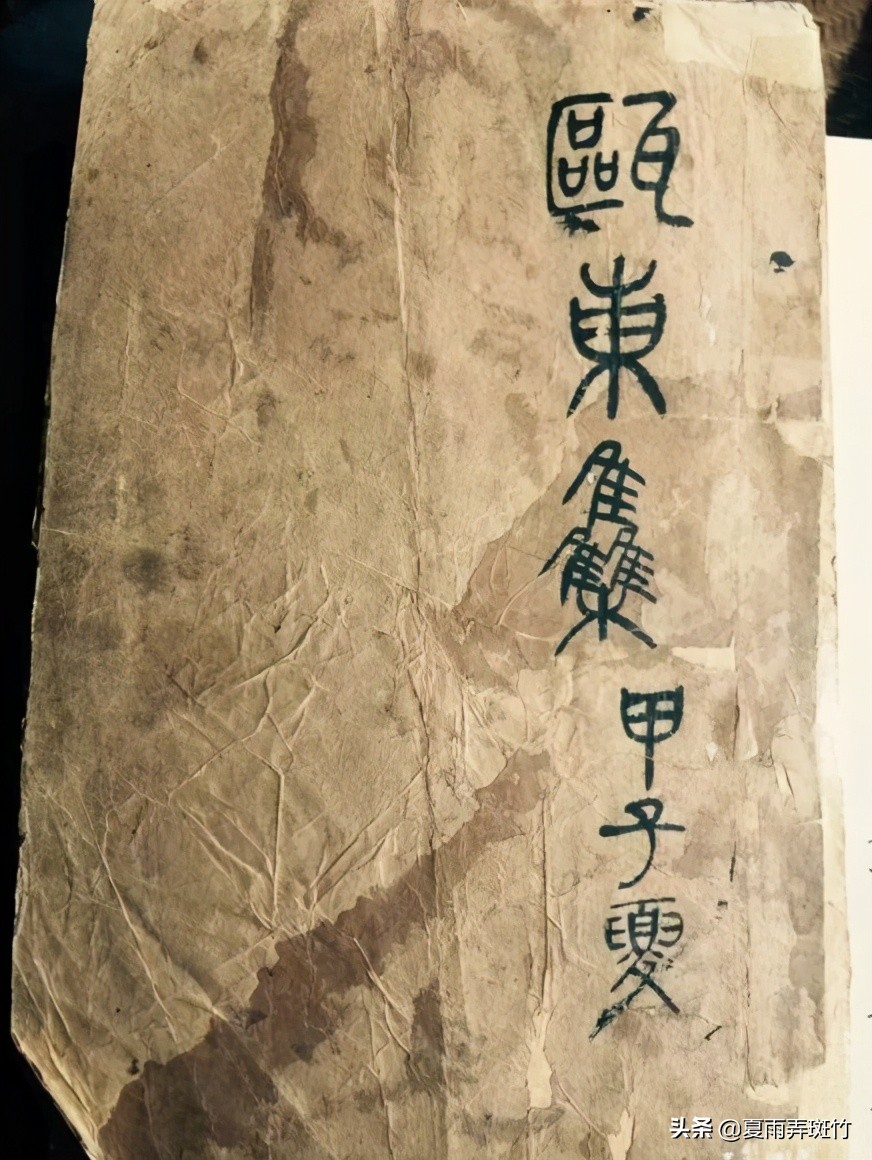 甌東雧
甲子夏
头条 @夏雨弄斑竹